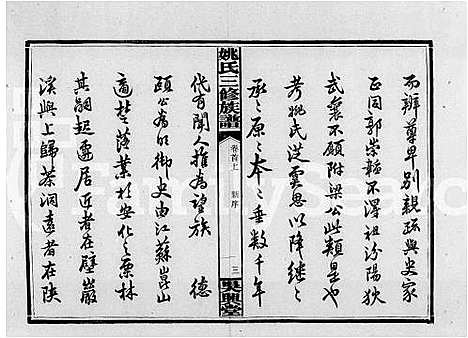 而辨尊卑別親疏與史家
正同郭崇韜不得祖汾陽狄
武襄不願附梁公此類是也
考姚氏從虞思以降繼繼
承承原原本本垂數千年
姚氏三修族譜
卷首上
新序
三
吳興堂
代有聞人推為望族 德
頤公為明御史由江蘇崑山
適楚落業於安化之栗林
其嗣起遷居近者在壁巖
溪與上歸茶洞遠者在陝